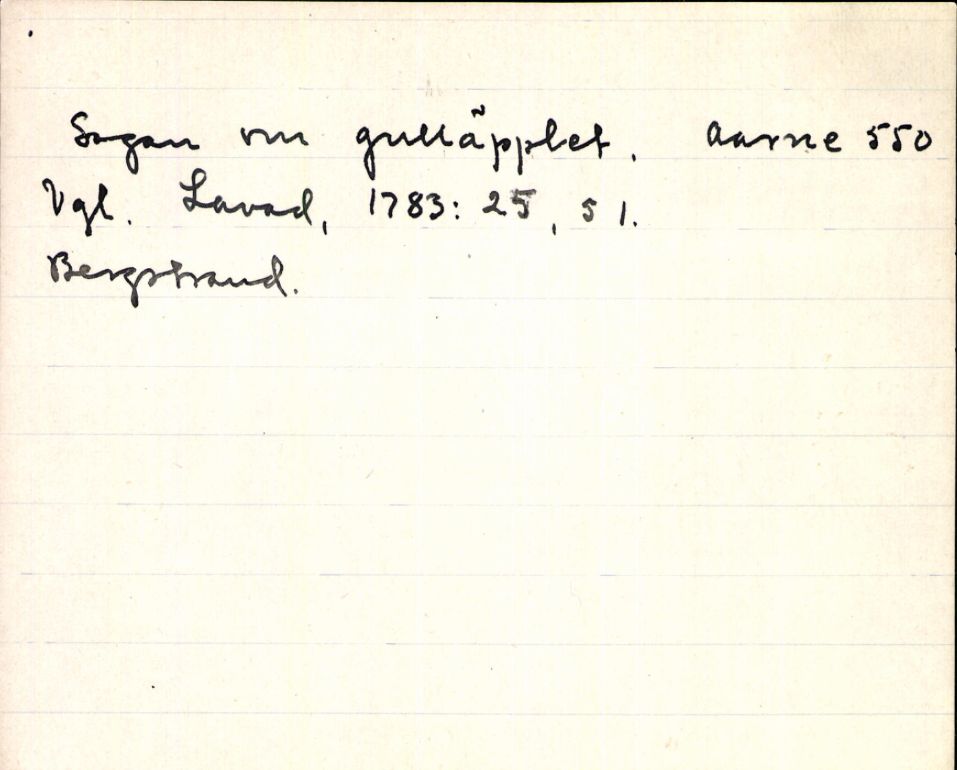 Sagan om gulläpplet. Aarne 550
Vgl. Lavad, 1783: 25, 51.
Bergstrand.